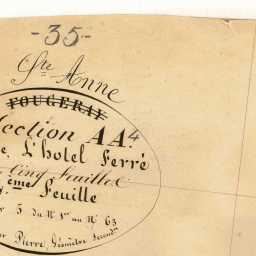 -35-
Ste Anne
FOUGERAY
Section AA4
L'hotel Ferré
Cinq Feuilles
ème Feuille
5 du N° 1er au N° 63
Pierre Géomètre Second